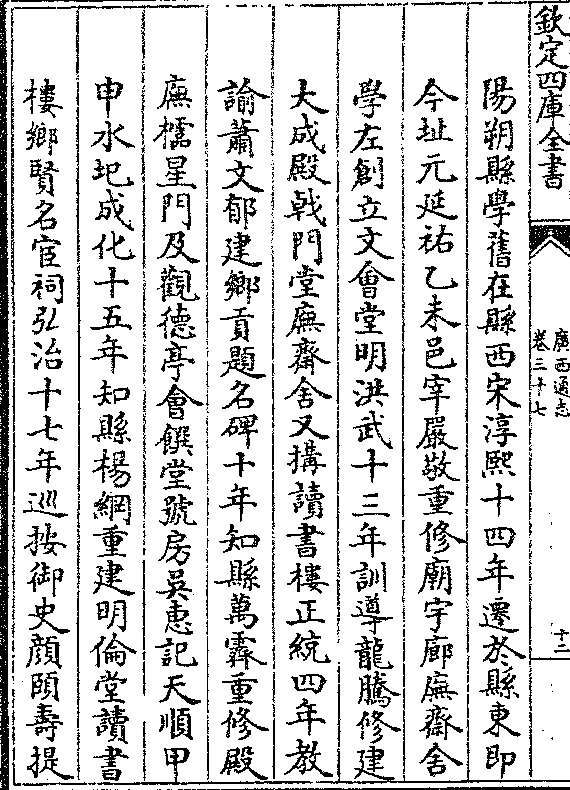 欽定四庫全書
廣西通志
卷三十七
十二
陽朔縣學舊在縣西宋淳熙十四年遷於縣東即
今址元延祐乙未邑宰嚴敬重修廟宇廊廡齋舍
學左創立文會堂明洪武十三年訓導龍騰修建
大成殿㦸門堂廡齋舍又搆讀書樓正統四年教
諭蕭文郁建鄉貢題名碑十年知縣萬霖重修殿
廡櫺星門及觀德亭會饌堂號房吳惠記天順甲
申水圮成化十五年知縣楊綱重建明倫堂讀書
樓鄉賢名宦祠弘治十七年巡按御史顔頤壽提